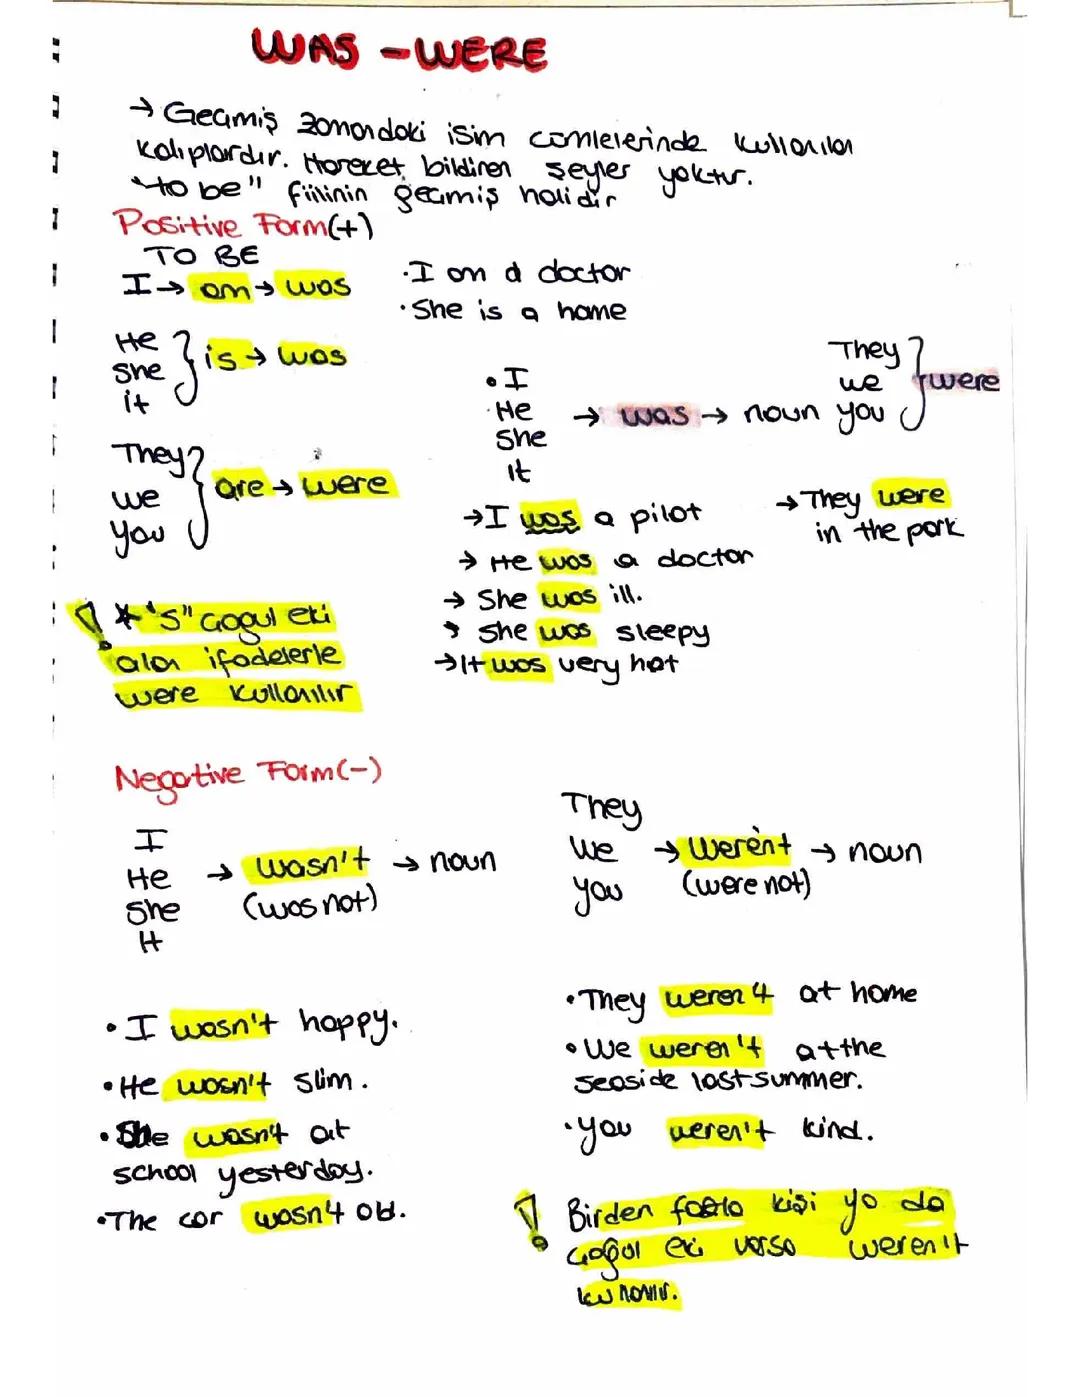 WAS - WERE
→ Geçmiş zamandaki isim cümlelerinde kullanılan
kalıplardır. Hareket bildiren şeyler yoktur.
"to be" fiilinin geçmiş halidir
Positive Form(+)
TO BE
I → am → was
· I am a doctor
· She is a home
He
She
it
is → was
They
we
you
are → were
• I
· He
She
It
→ was → noun
They
we
you
were
→ I was a pilot
→ He was a doctor
→ She was ill.
→ She was sleepy
→ It was very hot
→ They were
in the park
! * "S" çoğul eki
alan ifadelerle
were kullanılır
Negative Form(-)
I
He
She
It
→ wasn't → noun
(was not)
They
we
you
→ weren't → noun
(were not)
• I wasn't happy.
• He wasn't slim.
• She wasn't at
school yesterday.
• The car wasn't old.
• They weren't at home
• We weren't at the
seaside last summer.
• you weren't kind.
! Birden fazla kişi ya da
çoğul eki varsa weren't
kullanılır.